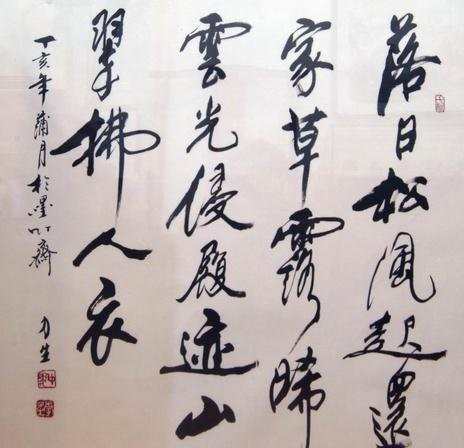 落日松風起還
家草露晞
雲光侵履迹山
翠拂人衣
丁亥年蒲月於墨竹齋